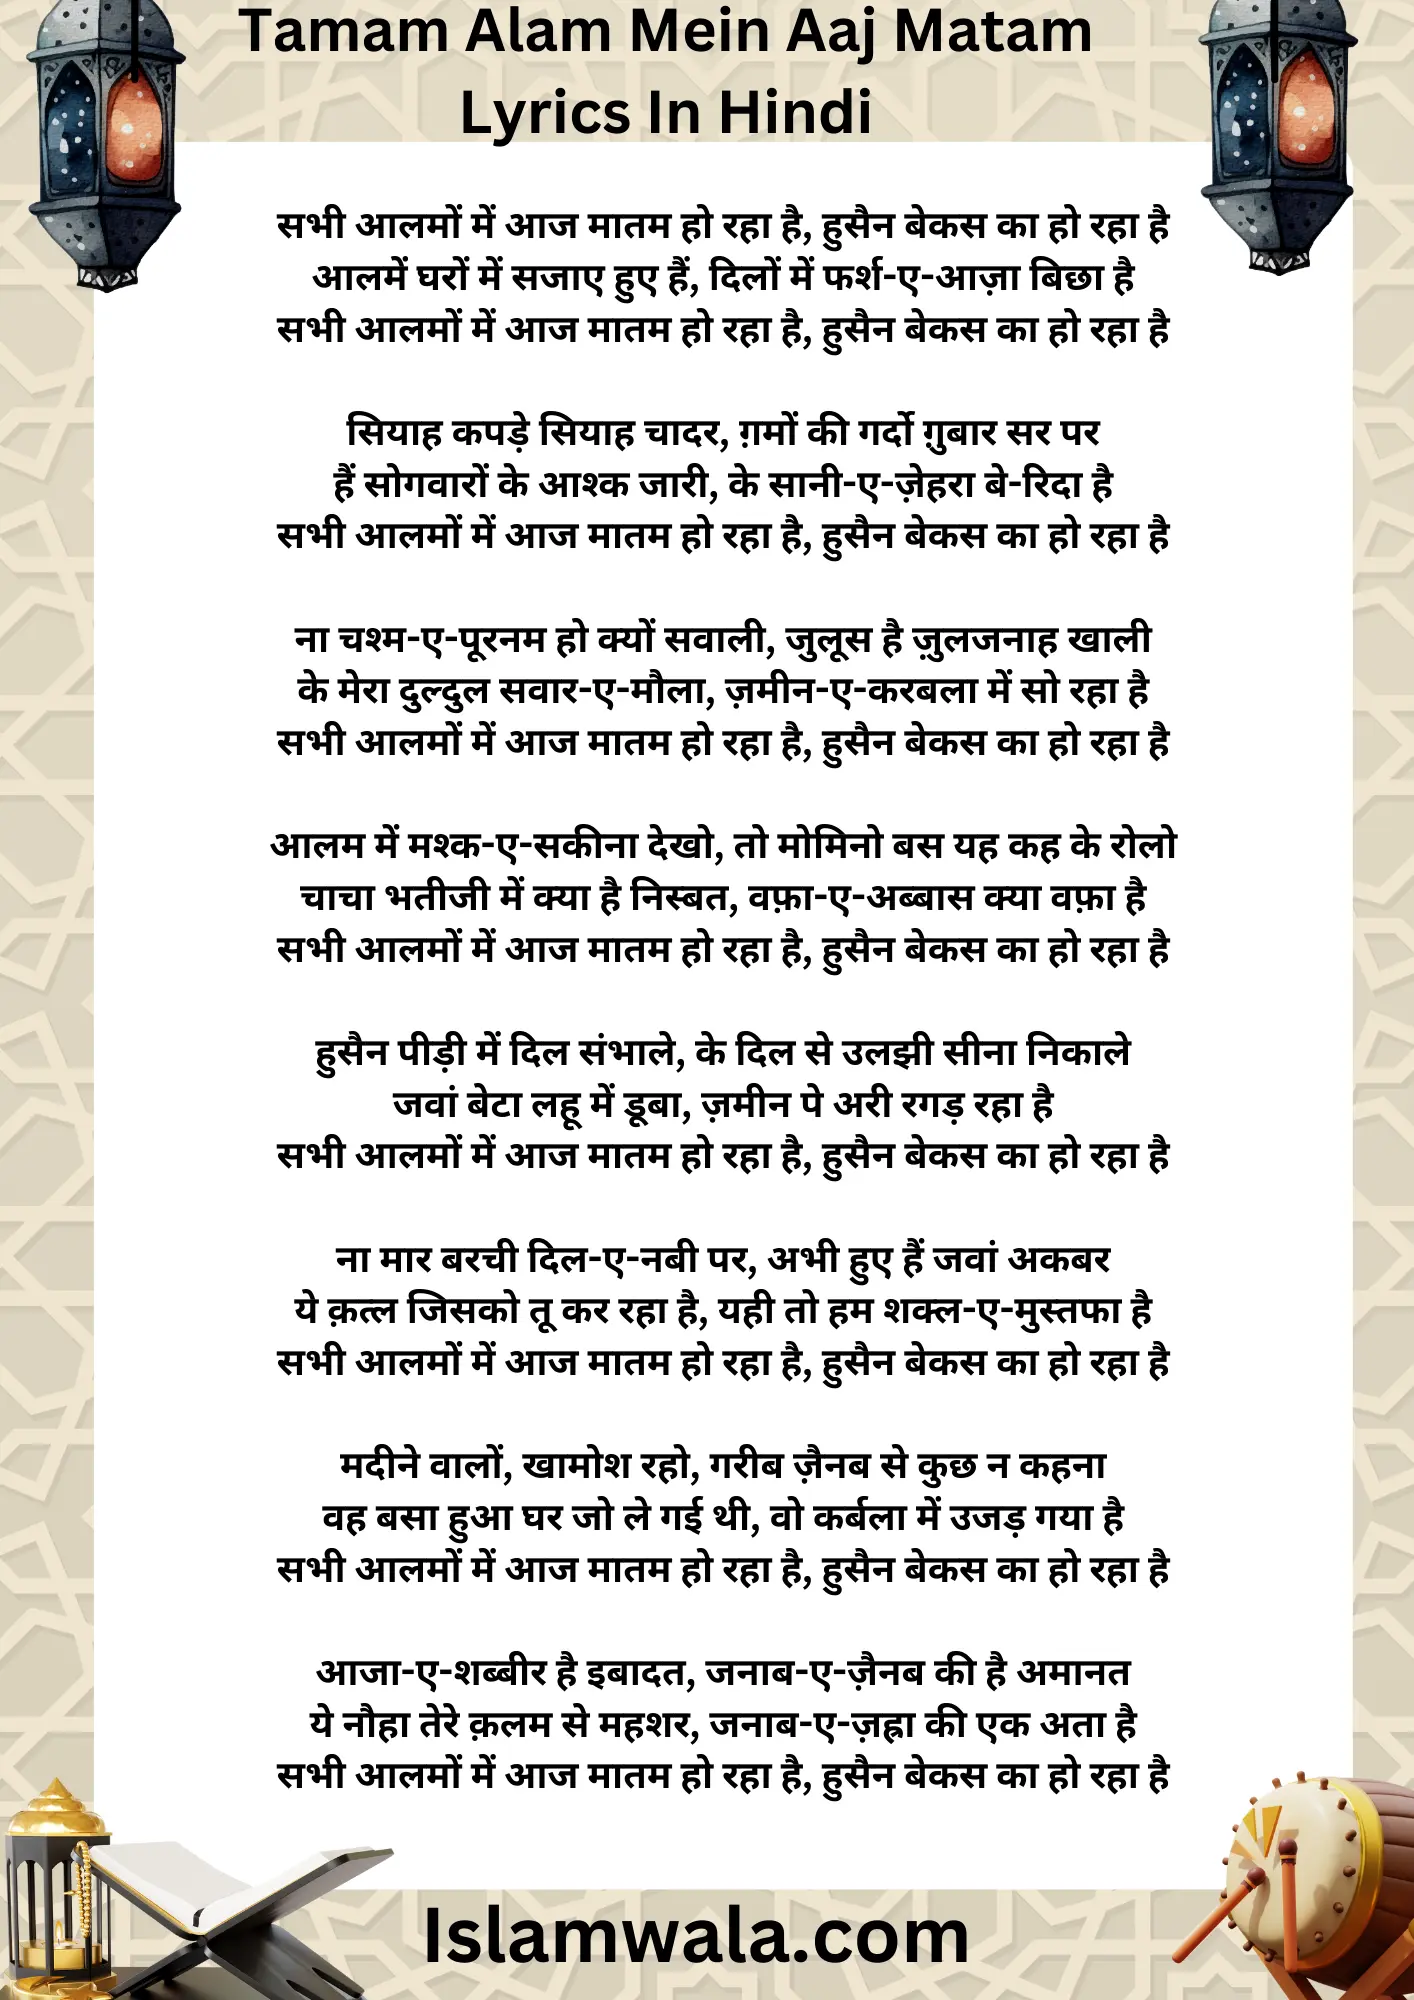 Tamam Alam Mein Aaj Matam
Lyrics In Hindi
सभी आलमों में आज मातम हो रहा है, हुसैन बेकस का हो रहा है
आलमें घरों में सजाए हुए हैं, दिलों में फर्श-ए-आज़ा बिछा है
सभी आलमों में आज मातम हो रहा है, हुसैन बेकस का हो रहा है
सियाह कपड़े सियाह चादर, ग़मों की गर्दो ग़ुबार सर पर
हैं सोगवारों के आश्क जारी, के सानी-ए-ज़ेहरा बे-रिदा है
सभी आलमों में आज मातम हो रहा है, हुसैन बेकस का हो रहा है
ना चश्म-ए-पूरनम हो क्यों सवाली, जुलूस है ज़ुलजनाह खाली
के मेरा दुल्दुल सवार-ए-मौला, ज़मीन-ए-करबला में सो रहा है
सभी आलमों में आज मातम हो रहा है, हुसैन बेकस का हो रहा है
आलम में मश्क-ए-सकीना देखो, तो मोमिनो बस यह कह के रोलो
चाचा भतीजी में क्या है निस्बत, वफ़ा-ए-अब्बास क्या वफ़ा है
सभी आलमों में आज मातम हो रहा है, हुसैन बेकस का हो रहा है
हुसैन पीड़ी में दिल संभाले, के दिल से उलझी सीना निकाले
जवां बेटा लहू में डूबा, ज़मीन पे अरी रगड़ रहा है
सभी आलमों में आज मातम हो रहा है, हुसैन बेकस का हो रहा है
ना मार बरची दिल-ए-नबी पर, अभी हुए हैं जवां अकबर
ये क़त्ल जिसको तू कर रहा है, यही तो हम शक्ल-ए-मुस्तफा है
सभी आलमों में आज मातम हो रहा है, हुसैन बेकस का हो रहा है
मदीने वालों, खामोश रहो, गरीब ज़ैनब से कुछ न कहना
वह बसा हुआ घर जो ले गई थी, वो कर्बला में उजड़ गया है
सभी आलमों में आज मातम हो रहा है, हुसैन बेकस का हो रहा है
आजा-ए-शब्बीर है इबादत, जनाब-ए-ज़ैनब की है अमानत
ये नौहा तेरे क़लम से महशर, जनाब-ए-ज़ह्रा की एक अता है
सभी आलमों में आज मातम हो रहा है, हुसैन बेकस का हो रहा है
Islamwala.com